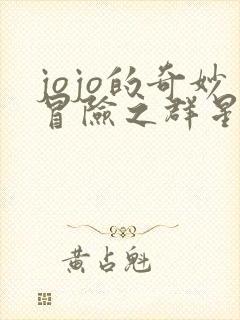 jojo的奇妙
冒險之群星
黄占魁